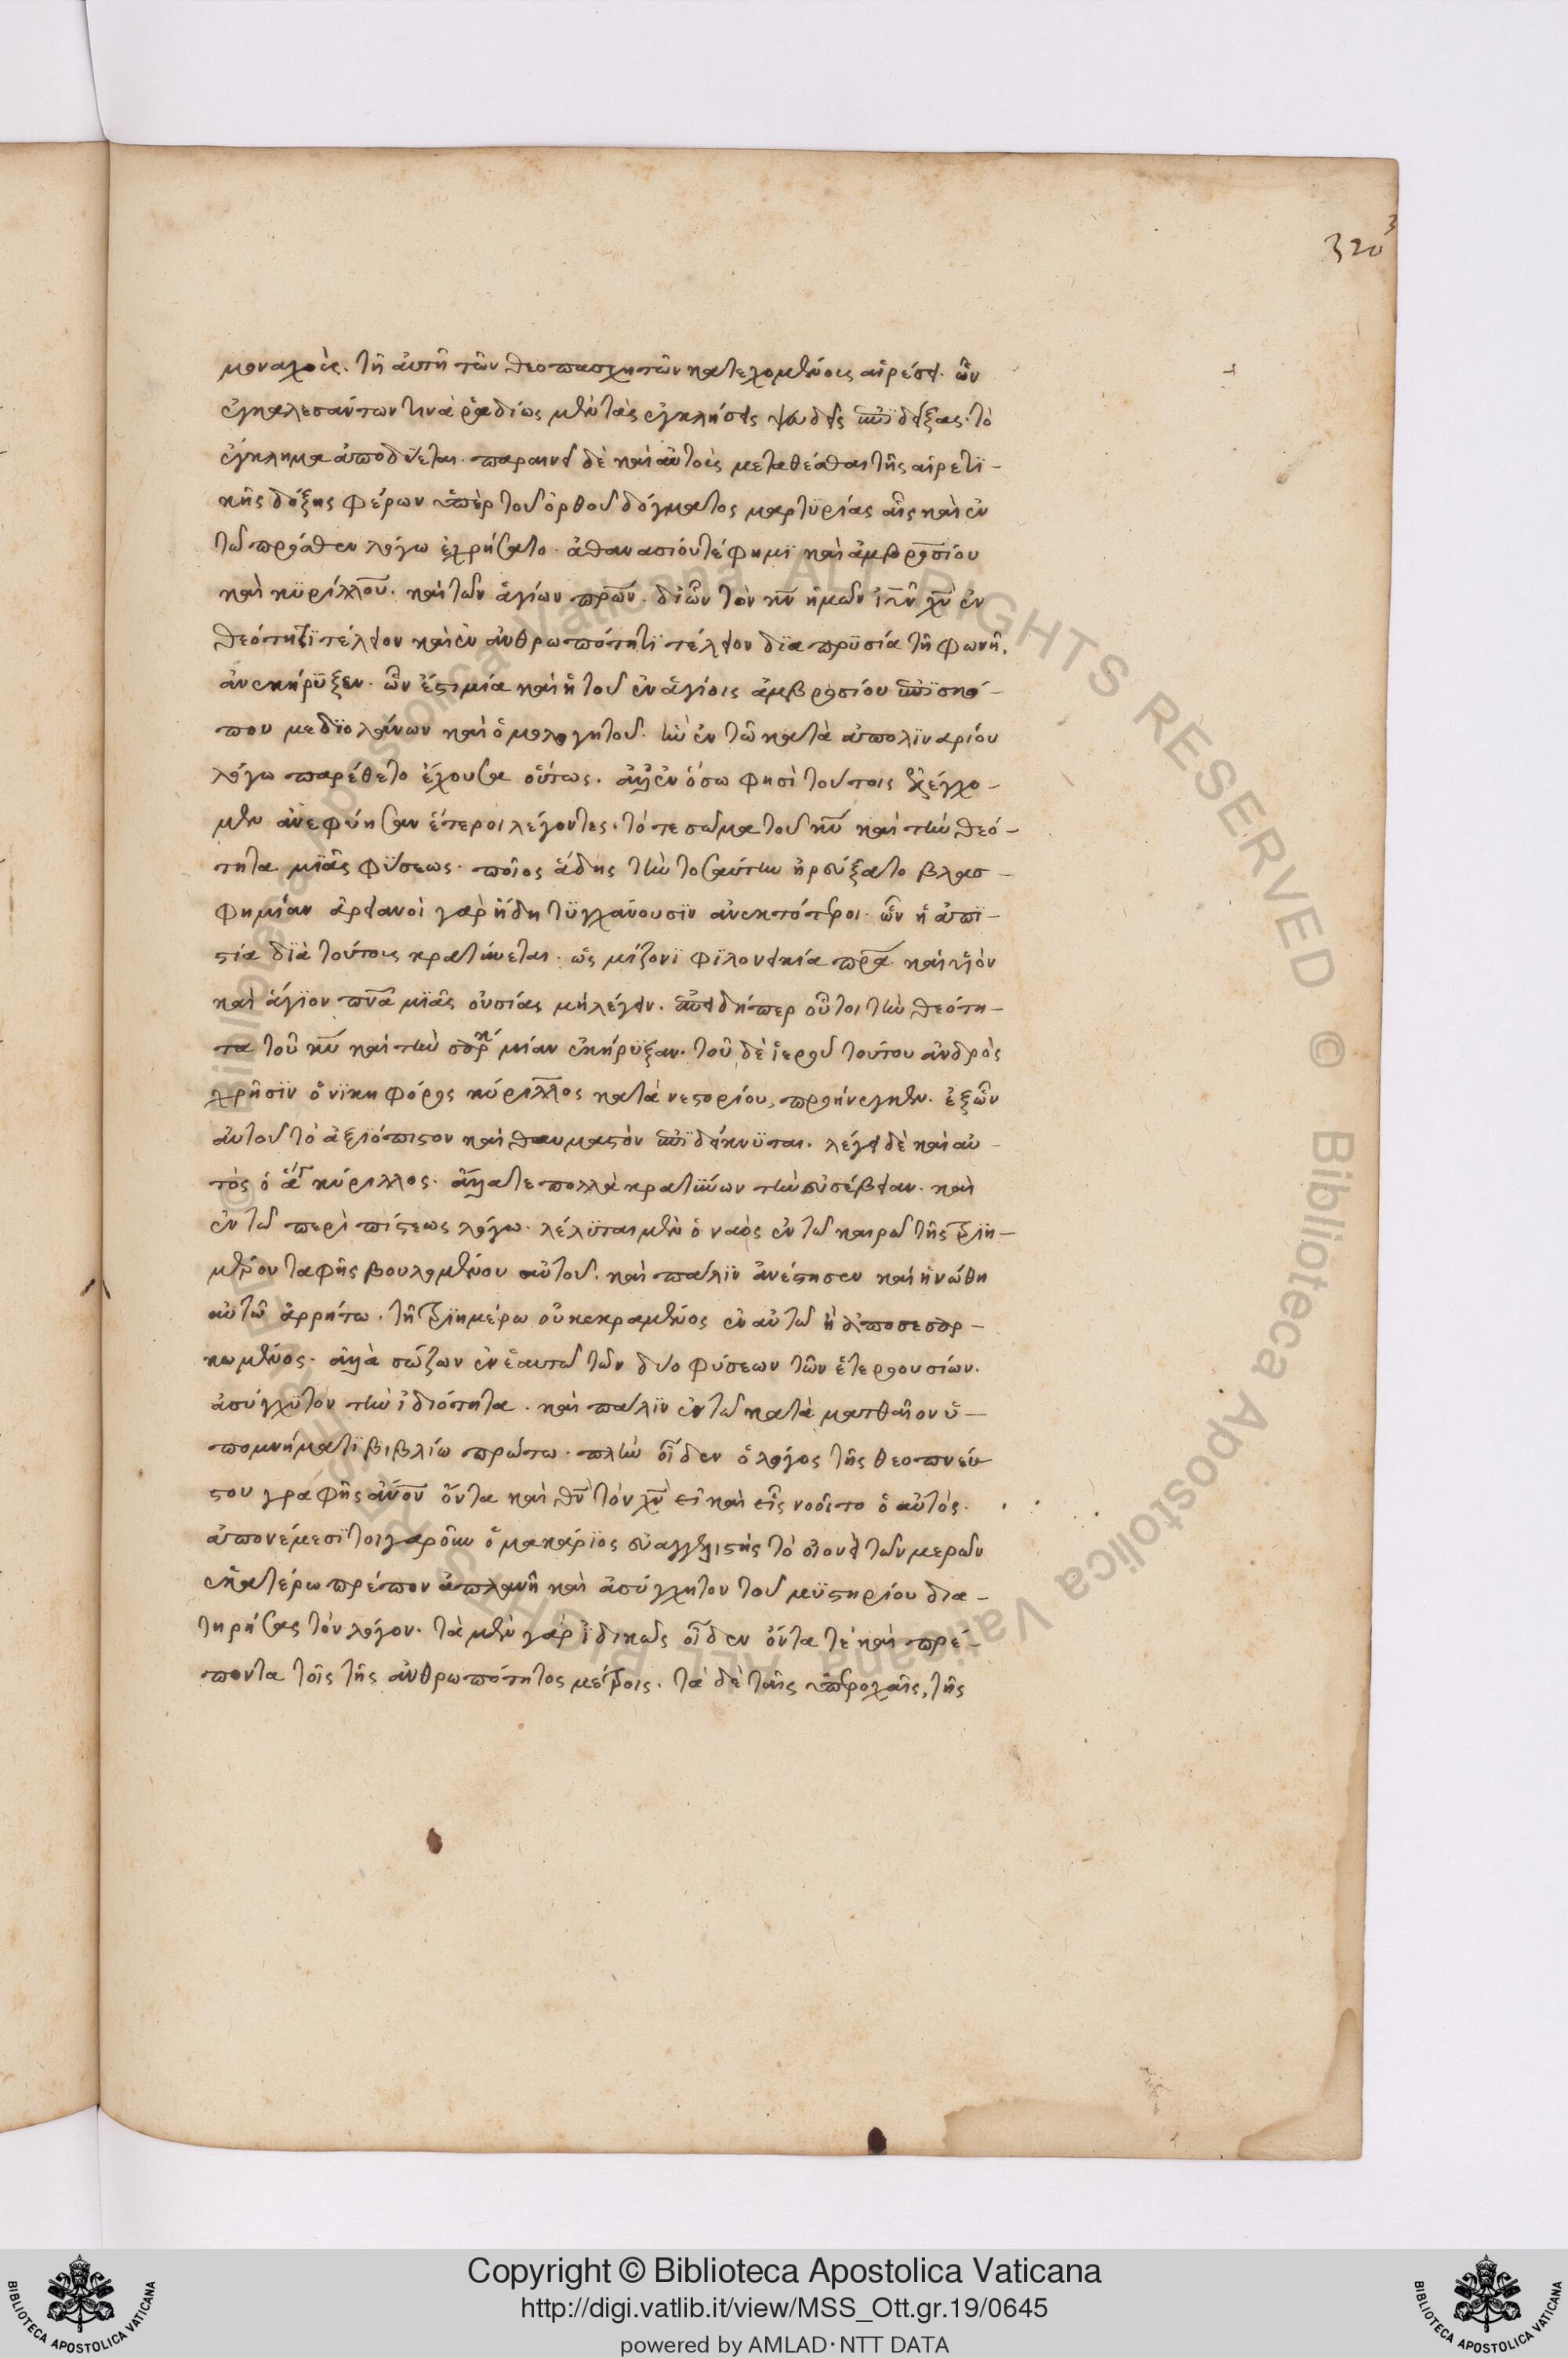 320
3
μοναχοῖς. τῆ αὐτῆ τῶν θεοπασχητῶν κατεχομένοις αἱρέσει. ὧν
ἐγκαλεσάντων τινὰ ῥαδίως μὲν τὰς ἐγκλήσεις ψευδεῖς ἐπϊδείξας. τὸ
ἔγκλημα ἀποδύεται. παραινεῖ δὲ καὶ αὐτοῖς μεταθέσθαι τῆς αἱρετϊ-
κῆς δόξης φέρων ὑπὲρ τοῦ ὀρθοῦ δόγματος μαρτϋρίας αἷς καὶ ἐν
τῶ πρόσθεν λόγω ἐχρήσατο. ἀθανασίου τέ φημϊ καὶ ἀμβροσίου
καὶ κϋρίλλου. καὶ τῶν ἁγίων πρων. δι' ὧν τὸν κν ἡμῶν ιν χν ἐν
θεότητϊ τέλειον καὶ ἐν ἀνθρωπότητϊ τέλειον δϊαπρϋσία τῆ φωνῆ.
ἀνεκήρϋξεν. ὧν ἔστι μία καὶ ἡ τοῦ ἐν ἁγίοις ἀμβροσίου ἐπϊσκό-
που μεδϊολάνων καὶ ὁμολογητοῦ. ἣν ἐν τῶ κατὰ ἀπολϊναρίου
λόγω παρέθετο ἔχουσα οὕτως. ἀλλ' ἐν ὅσω φησὶ τούτοις ἐξελέγχο-
μεν ἀνεφύησαν ἕτεροι λέγοντες. τό τε σῶμα τοῦ κυ καὶ τὴν θεό-
τητα μϊᾶς φϋσεως. ποῖος ἅδης τὴν τοσαύτην ἠρεύξατο βλασ-
φημίαν ἀρειανοὶ γὰρ ἤδη τϋγχάνουσϊν ἀνεκτότεροι. ὧν ἡ ἀπϊ-
στία δϊὰ τούτοις κρατύνεται. ὡς μείζονϊ φϊλονεικία πρα καὶ υἱὸν
καὶ ἅγϊον πνα μϊᾶς οὐσίας μὴ λέγειν. ἐπειδήπερ οὗτοι τὴν θεότη-
τα τοῦ κυ καὶ τὴν σάρκα μίαν ἐκήρϋξαν. τοῦ δὲ ἱεροῦ τούτου ἀνδρὸς
χρῆσϊν ὁ νϊκηφόρος κύριλλος κατὰ νεστορίου, προήνεγκεν. ἐξ ὧν
αὐτοῦ τὸ ἀξιόπιστον καὶ θαυμαστὸν ἐπϊδείκνϋται. λέγει δὲ καὶ αὐ-
τὸς ὁ ἅγ κύριλλος. ἄλλά τε πολλὰ κρατϋνων τὴν εὐσέβειαν. καὶ
ἐν τῶ περὶ πίστεως λόγω. λέλϋται μὲν ὁ ναὸς ἐν τῶ καιρῶ τῆς τρϊη-
μέρου ταφῆς βουλομένου αὐτοῦ. καὶ πάλϊν ἀνέστησεν καὶ ἡνώθη
αὐτῶ ἀρρήτω. τῆ τρϊημέρω οὐ κεκραμένος ἐν αὐτῶ ἢ ἀποσεσαρ-
κωμένος. ἀλλὰ σώζων ἐν ἑαυτῶ τῶν δύο φύσεων τῶν ἑτεροουσίων.
ἀσύγχϋτον τὴν ἰδιότητα. καὶ πάλϊν ἐν τῶ κατὰ ματθαῖον ὑ-
πομνήματϊ βιβλίω πρώτω. πλὴν οἶδεν ὁ λόγος τῆς θεοπνεύ
στου γραφῆς ἀνον ὄντα καὶ θν τὸν χν εἰ καὶ εἷς νοοῖτο ὁ αὐτὸς.
ἀπονέμεσϊ τοιγαροῦν ὁ μακάρϊος εὐαγγελιστὴς τὸ οἱονεὶ τῶν μερῶν
ἑκατέρω πρέπον ἀπλανῆ καὶ ἀσύγχητον τοῦ μϋστηρίου δια-
τηρήσας τὸν λόγον. τὰ μὲν γὰρ ἰδικῶς οἶδεν ὄντα τὲ καὶ πρέ-
ποντα τοῖς τῆς ἀνθρωπότητος μέτροις. τὰ δὲ ταῖς ὑπεροχαῖς, τῆς
Copyright © Biblioteca Apostolica Vaticana
http://digi.vatlib.it/view/MSS_Ott.gr.19/0645
powered by AMLAD·NTT DATA